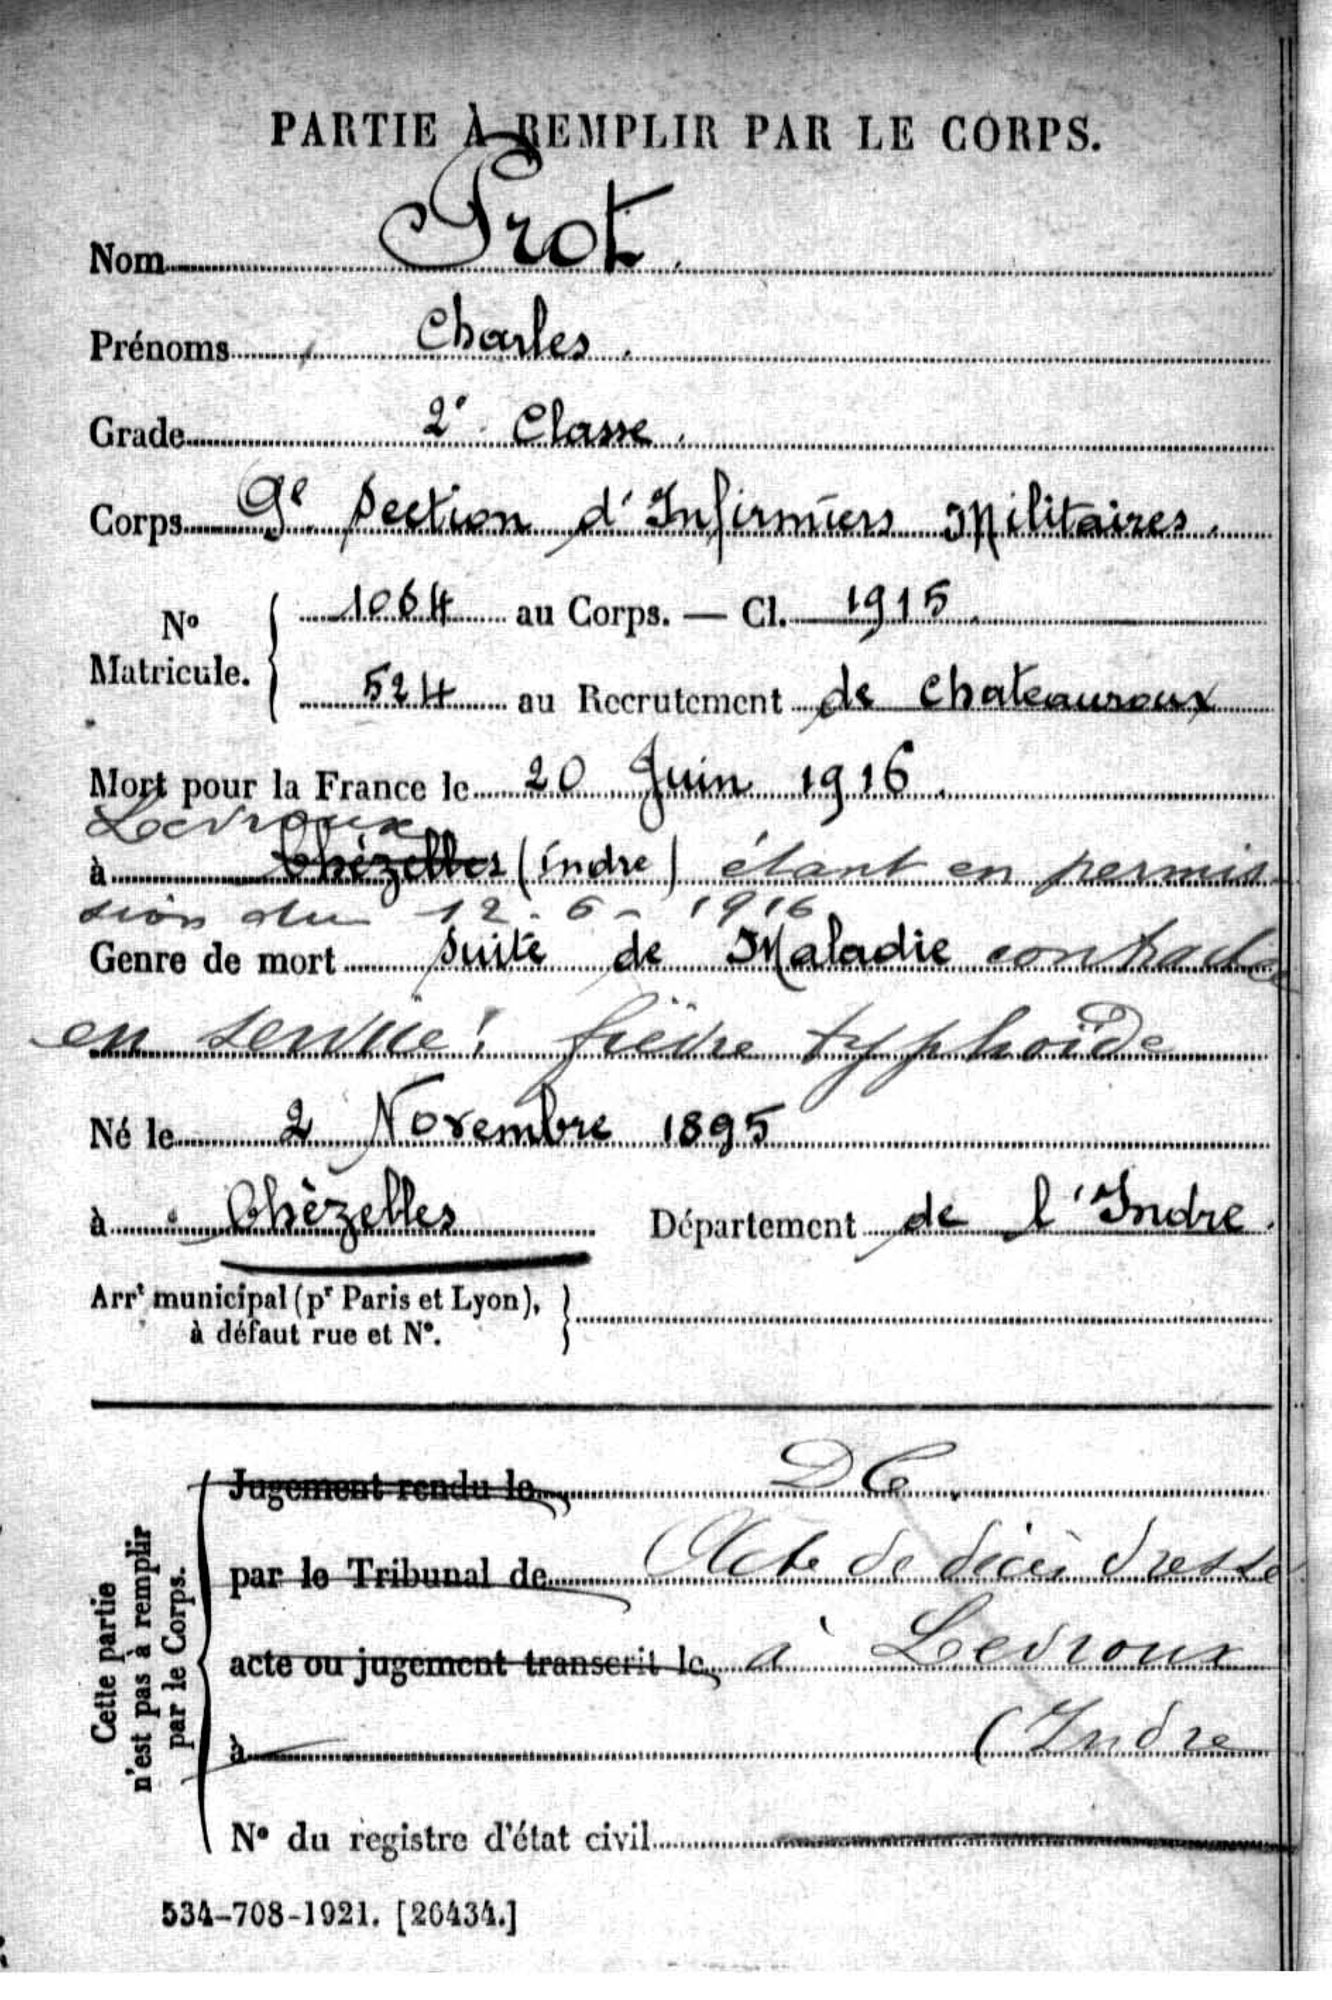 PARTIE À REMPLIR PAR LE CORPS.
Nom Prot.
Prénoms Charles.
Grade 2e Classe.
Corps 9e Section d'Infirmiers Militaires.
No Matricule. { 1064 au Corps. — Cl. 1915
524 au Recrutement de Chateauroux
Mort pour la France le 20 Juin 1916.
Levroux
à Chézelles (Indre) étant en permis
sion du 12-6-1916
Genre de mort Suite de Maladie contractée
en service : fièvre typhoïde
Né le 2 Novembre 1895
à Chèzelles Département de l'Indre.
Arrt municipal (pr Paris et Lyon), }
à défaut rue et No.
Cette partie
n'est pas à remplir
par le Corps.
Jugement rendu le DC.
par le Tribunal de Acte de décès dressé
acte ou jugement transcrit le à Levroux
à (Indre
No du registre d'état civil
534-708-1921. [26434.]